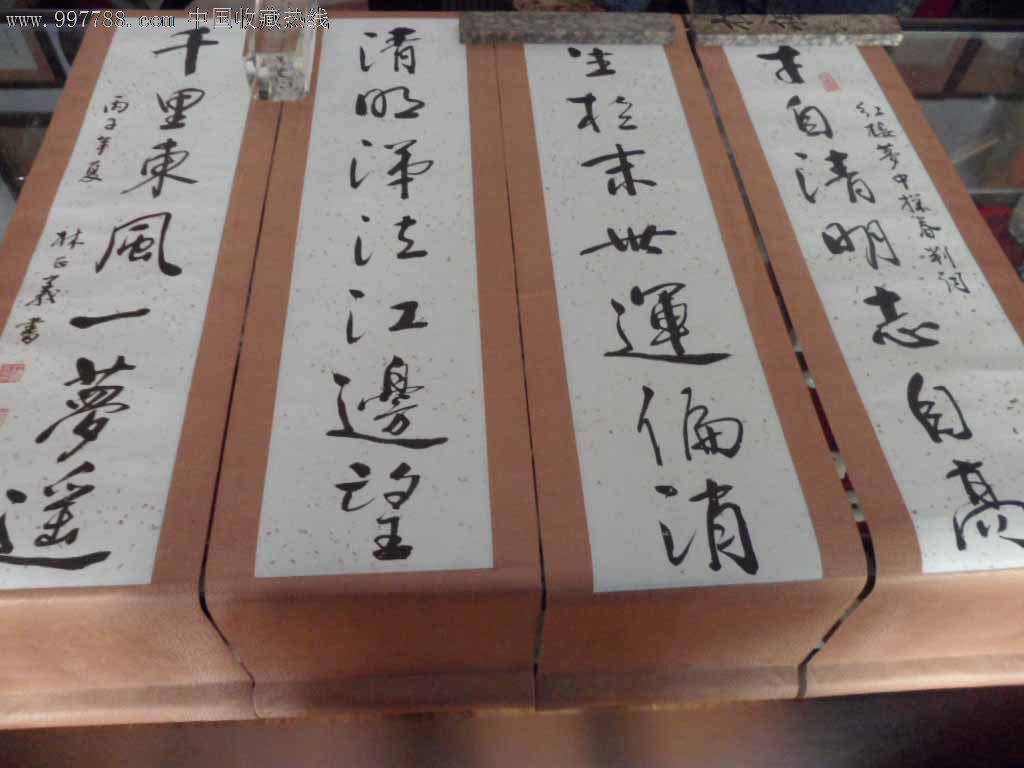 www.997788.com 中国收藏热线
才自清明志自高
红楼夢中探春判词
生於末世運偏消
清明涕泣江邊望
千里東風一夢遥
丙子年夏
林正義書